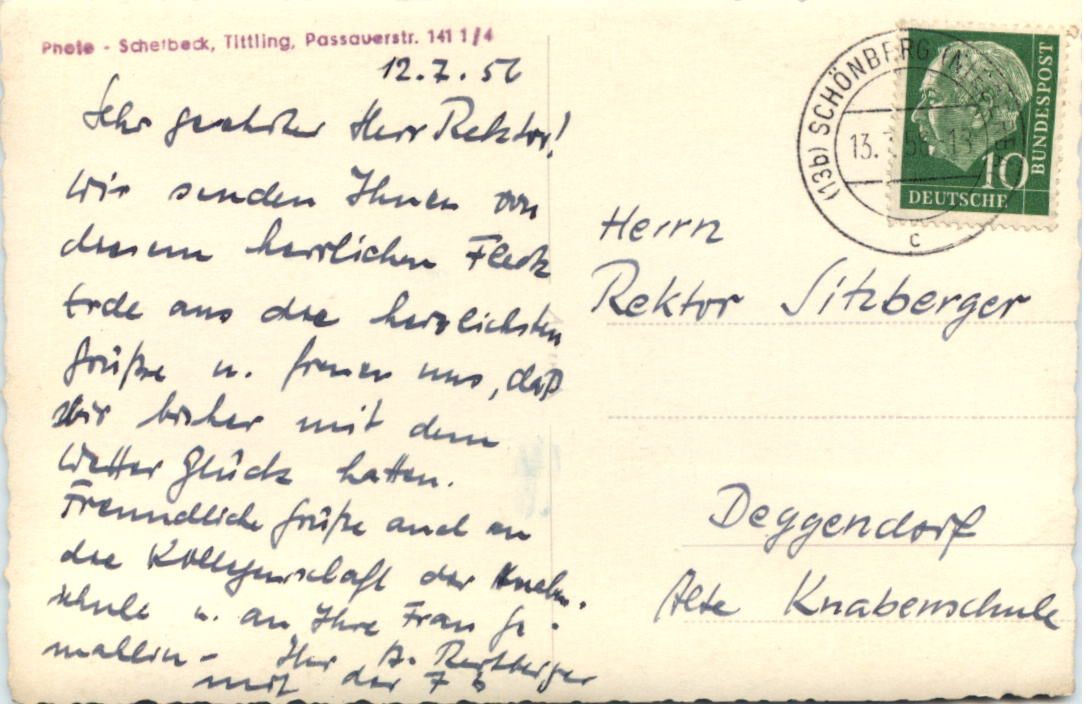 Photo - Scheibeck, Tittling, Passauerstr. 141 1/4
12.7.56
Sehr geehrter Herr Rektor!
Wir senden Ihnen von
diesem herrlichen Fleck
Erde aus die herzlichsten
Grüße u. freuen uns, daß
wir bisher mit dem
Wetter Glück hatten.
Freundliche Grüße auch an
die Kollegenschaft der Knaben-
schule u. an Ihre Frau Ge-
mahlin - Ihr A.
mit der 7b
(13b) SCHÖNBERG
13. 56-13
c
10
DEUTSCHE
BUNDESPOST
Herrn
Rektor Sitzberger
Deggendorf
Alte Knabenschule